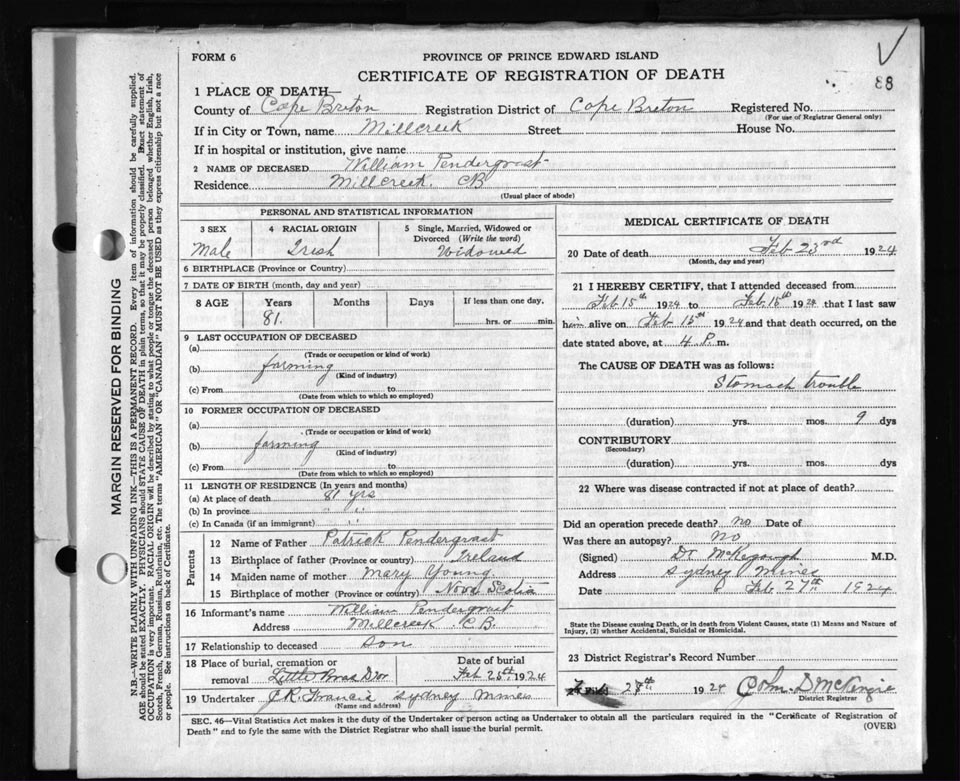 88
FORM 6
PROVINCE OF PRINCE EDWARD ISLAND
CERTIFICATE OF REGISTRATION OF DEATH
1 PLACE OF DEATH—
County of Cape Breton Registration District of Cape Breton Registered No.
(For use of Registrar General only)
If in City or Town, name Millcreek Street House No.
If in hospital or institution, give name
2 NAME OF DECEASED William Pendergrast
Residence Millcreek. CB
(Usual place of abode)
PERSONAL AND STATISTICAL INFORMATION
3 SEX 4 RACIAL ORIGIN 5 Single, Married, Widowed or Divorced (Write the word)
Male Irish Widowed
6 BIRTHPLACE (Province or Country)
7 DATE OF BIRTH (month, day and year)
8 AGE Years Months Days If less than one day.
81. hrs. or min.
9 LAST OCCUPATION OF DECEASED
(a)
(Trade or occupation or kind of work)
(b) farming
(Kind of industry)
(c) From to
(Date from which to which so employed)
10 FORMER OCCUPATION OF DECEASED
(a)
(Trade or occupation or kind of work)
(b) farming
(Kind of industry)
(c) From to
(Date from which to which so employed)
11 LENGTH OF RESIDENCE (In years and months)
(a) At place of death 81 yrs
(b) In province " "
(c) In Canada (if an immigrant) "
Parents
12 Name of Father Patrick Pendergrast
13 Birthplace of father (Province or country) Ireland
14 Maiden name of mother Mary Young
15 Birthplace of mother (Province or country) Nova Scotia
16 Informant's name William Pendergrast
Address Millcreek C.B.
17 Relationship to deceased Son
18 Place of burial, cremation or removal Little Bras D'or
Date of burial Feb 25th 1924
19 Undertaker Francis Sydney Mines
(Name and address)
MEDICAL CERTIFICATE OF DEATH
20 Date of death Feb 23rd 1924
(Month, day and year)
21 I HEREBY CERTIFY, that I attended deceased from
Feb 15th 1924 to Feb. 15th 1924 that I last saw
him alive on Feb 15th 1924 and that death occurred, on the
date stated above, at 4 P. m.
The CAUSE OF DEATH was as follows:
Stomach trouble
(duration) yrs. mos. 9 dys
CONTRIBUTORY
(Secondary)
(duration) yrs. mos. dys
22 Where was disease contracted if not at place of death?
Did an operation precede death? no Date of
Was there an autopsy? no
(Signed) Dr McKeough M.D.
Address Sydney Mines
Date Feb. 27th 1924
State the Disease causing Death, or in death from Violent Causes, state (1) Means and Nature of
Injury, (2) whether Accidental, Suicidal or Homicidal.
23 District Registrar's Record Number
28th 1924 John D McKenzie
District Registrar
SEC. 46—Vital Statistics Act makes it the duty of the Undertaker or person acting as Undertaker to obtain all the particulars required in the "Certificate of Registration of
Death" and to fyle the same with the District Registrar who shall issue the burial permit.
(OVER)
MARGIN RESERVED FOR BINDING
N.B.—WRITE PLAINLY WITH UNFADING INK—THIS IS A PERMANENT RECORD. Every item of information should be carefully supplied.
AGE should be stated EXACTLY. PHYSICIANS should STATE CAUSE OF DEATH in plain terms, so that it may be properly classified. Exact statement of
OCCUPATION is very important. RACIAL ORIGIN will be described by stating to what people or tongue the deceased person belonged whether English, Irish,
Scotch, French, German, Russian, Ruthenian, etc. The terms "AMERICAN" OR "CANADIAN" MUST NOT BE USED as they express citizenship but not a race
or people. See instructions on back of Certificate.